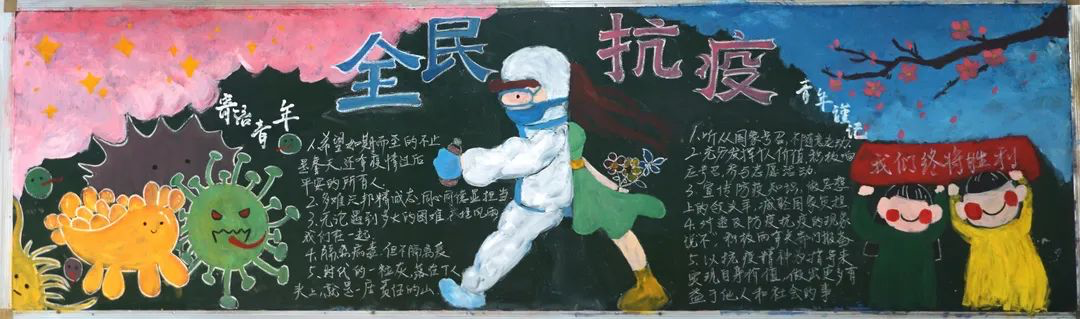 全民抗疫
寄语青年
1.希望如期而至的不止
是春天,还有疫情过后
平安的所有人
2.多难兴邦精诚志,同心同德显担当
3.无论遇到多大的困难,
我们在一起
4.隔离病毒,但不隔离爱
5.时代的一粒灰,落在个人
头上,就是一座责任的山
青年谨记
1.听从国家号召,不随意走动
2.充分发挥个人价值,积极响
应号召参与志愿活动
3.宣传防疫知识,做思想
上的
说不,积极向有关部门报备
5.以抗疫精神为指导来
实现自身价值,做出更多有
益于他人和社会的事
我们终将胜利